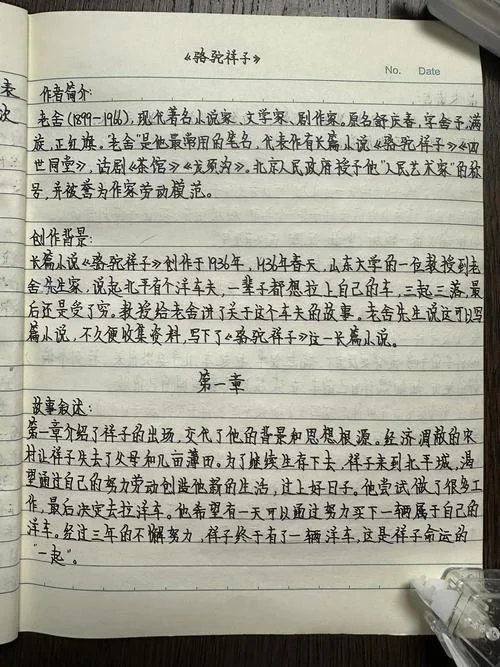 《骆驼祥子》
No. Date
作者简介:
老舍(1899-1966),现代著名小说家、文学家、剧作家。原名舒庆春,字舍予,满
族,正红旗。"老舍"是他最常用的笔名,代表作有长篇小说《骆驼祥子》《四
世同堂》,话剧《茶馆》《龙须沟》。北京人民政府授予他"人民艺术家"的称
号,并被誉为作家劳动模范。
创作背景:
长篇小说《骆驼祥子》创作于1936年,1936年春天,山东大学的一位教授到老
舍先生家,说起北平有个洋车夫,一辈子都想拉上自己的车,三起三落,最
后还是受了穷。教授给老舍讲了关于这个车夫的故事。老舍先生说这可以写
篇小说,不久便收集资料,写下了《骆驼祥子》这一长篇小说。
第一章
故事叙述:
第一章介绍了祥子的出场,交代了他的背景和思想根源。经济凋敝的农
村让祥子失去了父母和几亩薄田。为了继续生存下去,祥子来到北平城,渴
望通过自己的努力劳动创造他新的生活,过上好日子。他尝试做了很多工
作,最后决定去拉洋车。他希望有一天可以通过努力买下一辆属于自己的
洋车。经过三年的不懈努力,祥子终于有了一辆洋车,这是祥子命运的
"一起"。
表
次